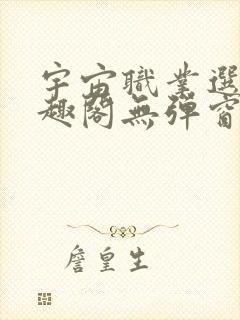 宇宙職業選
趣閣無彈窗
詹皇生